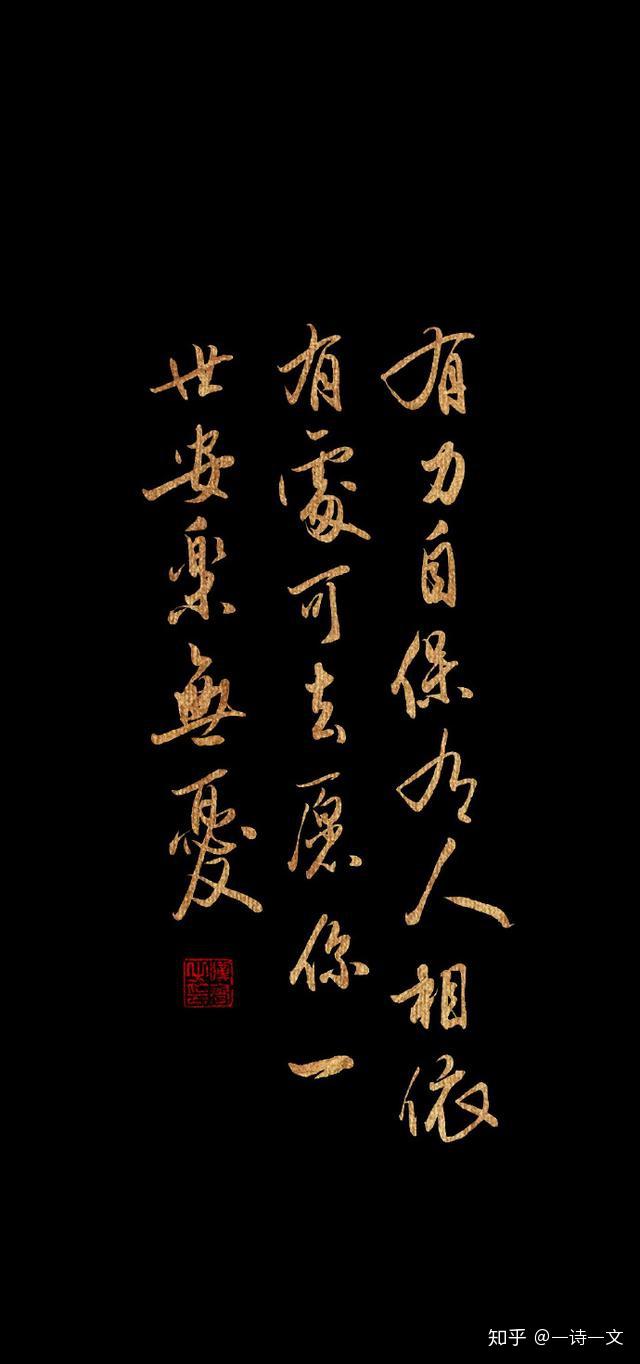 有力自保有人相依
有處可去愿你一
世安樂無憂
知乎 @一诗一文